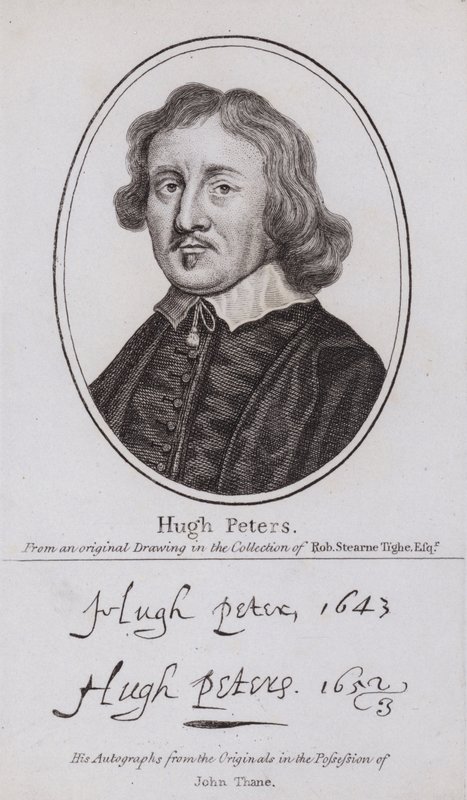 Hugh Peters.
From an original Drawing in the Collection of Rob. Stearne Tighe, Esqr.
Hugh Peter, 1643
Hugh Peters. 1652/3
His Autographs from the Originals in the Poſseſsion of
John Thane.